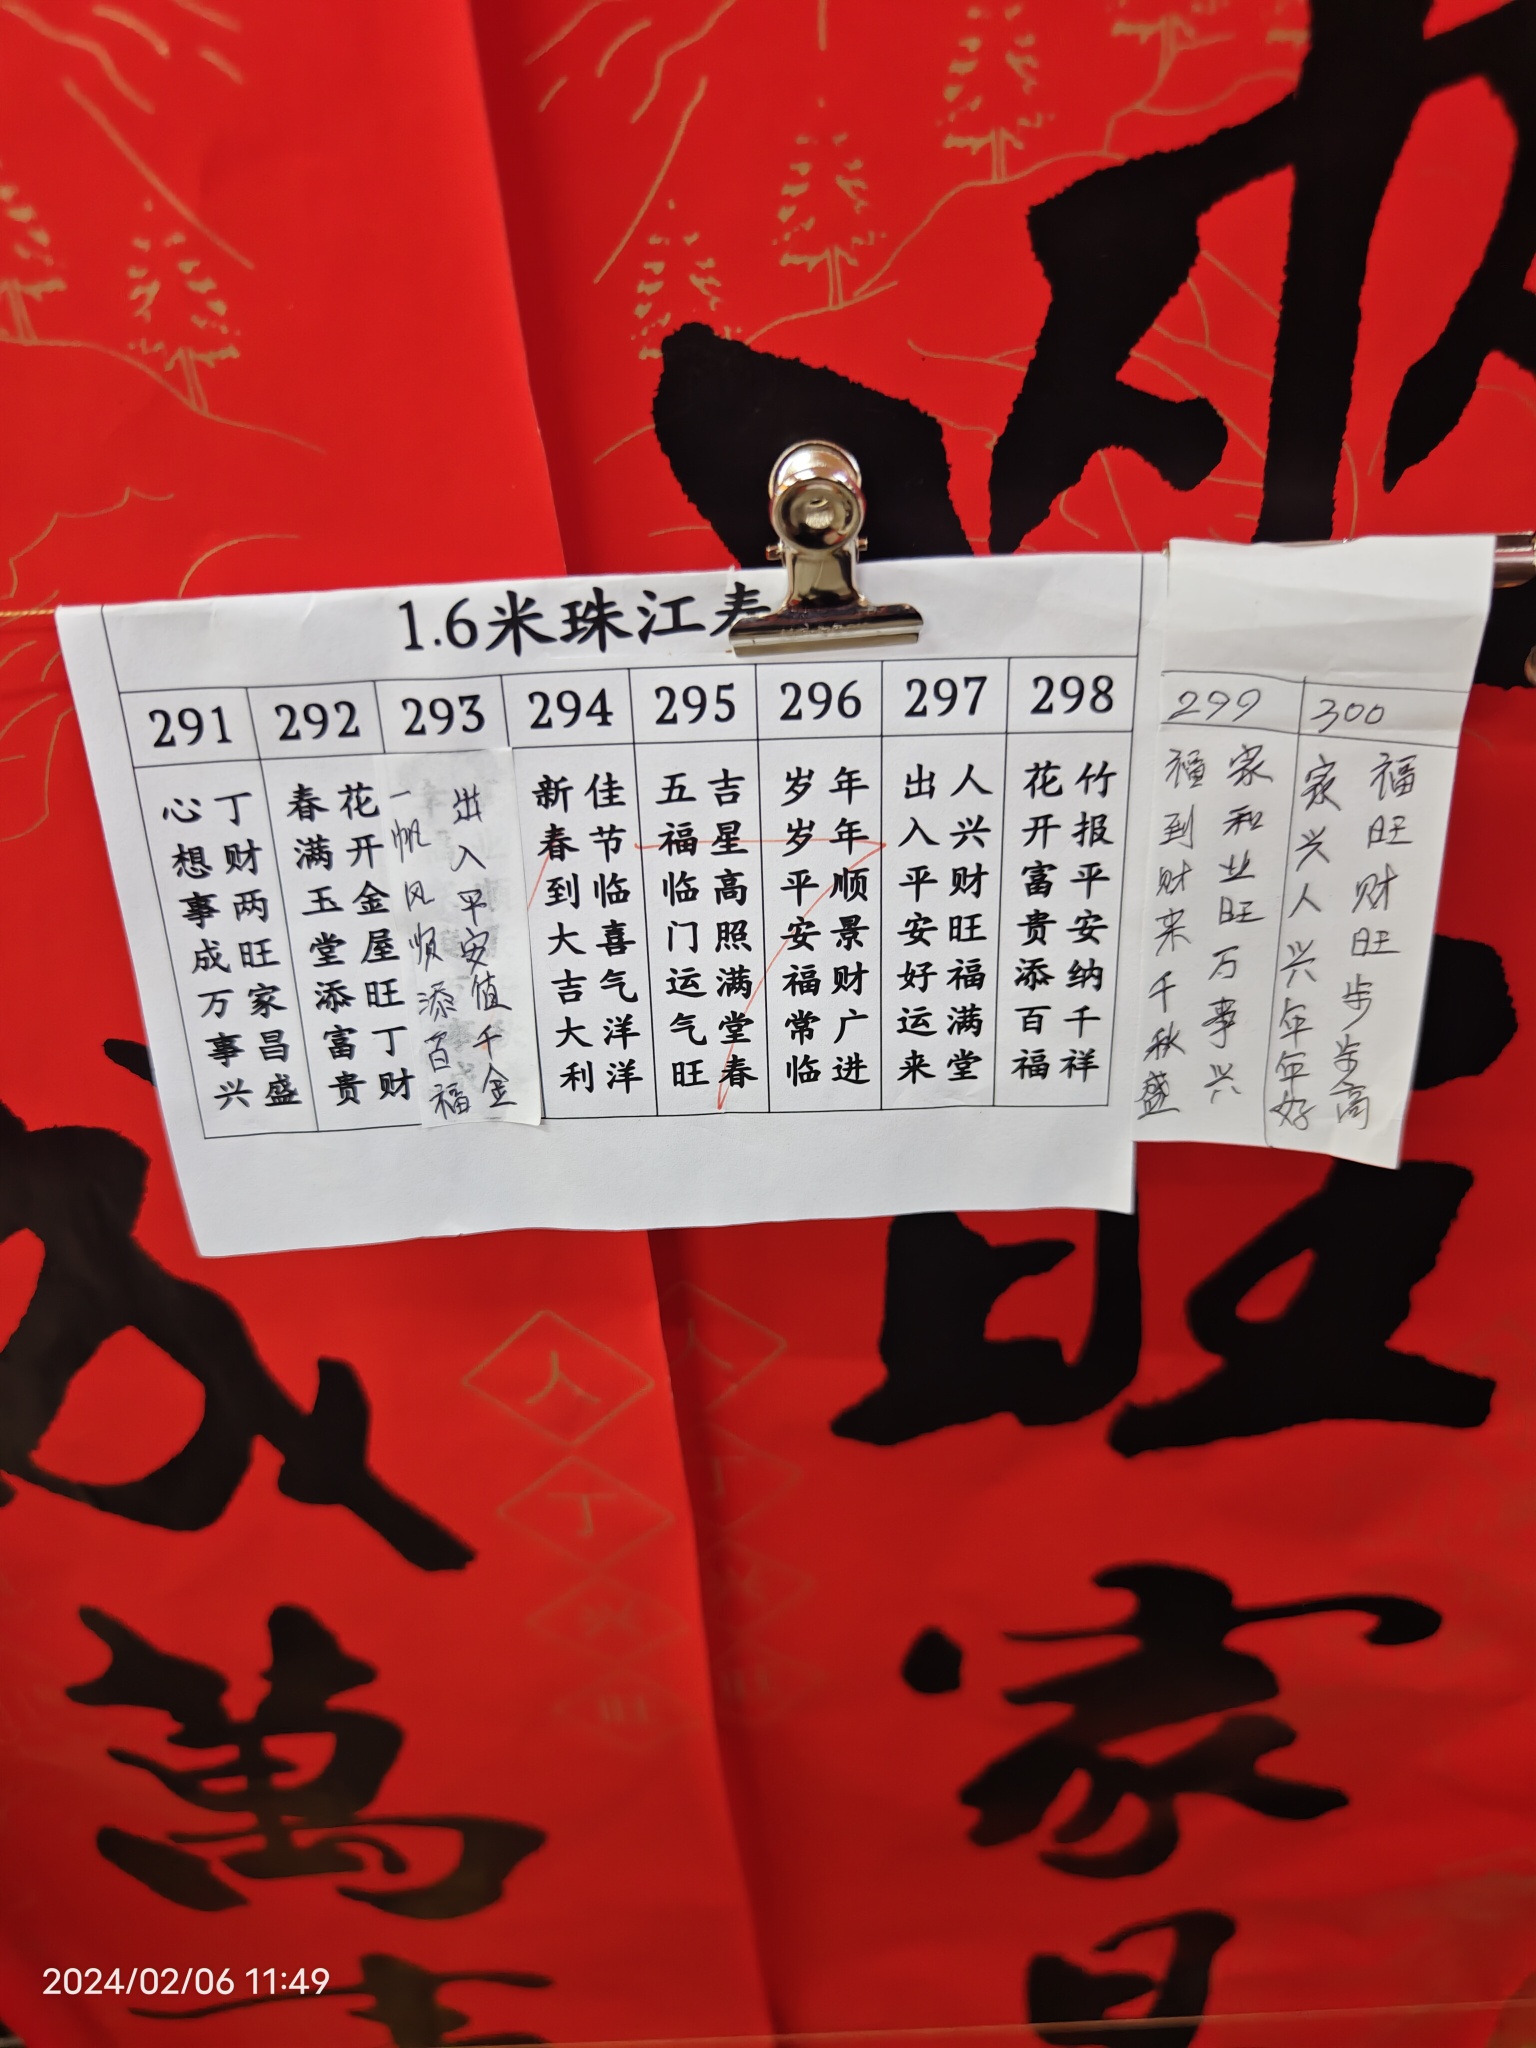 1.6米珠江寿
291 292 293 294 295 296 297 298 299 300
丁财两旺家昌盛
心想事成万事兴
花开金屋旺丁财
春满玉堂添富贵
出入平安值千金
一帆风顺添百福
佳节临喜气洋洋
新春到大吉大利
吉星高照满堂春
五福临门运气旺
年年顺景财广进
岁岁平安福常临
人兴财旺福满堂
出入平安好运来
竹报平安纳千祥
花开富贵添百福
家和业旺万事兴
福到财来千秋盛
福旺财旺步步高
家兴人兴年年好
旺
家
萬
人
丁
兴
旺
2024/02/06 11:49